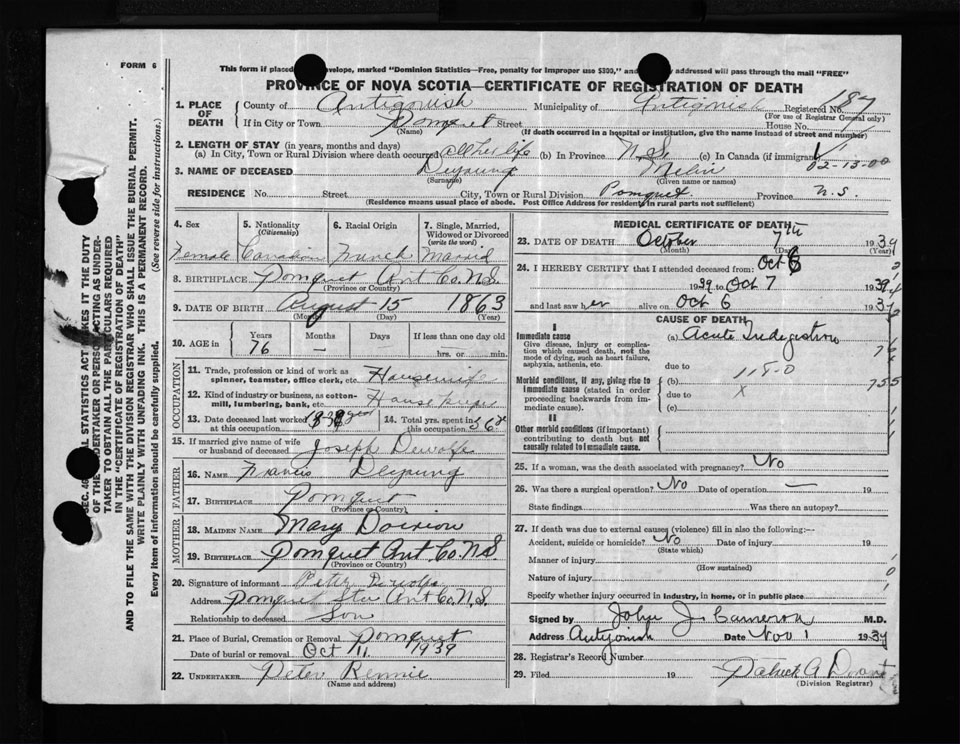 FORM 6
This form if placed envelope, marked "Dominion Statistics—Free, penalty for improper use $300," and addressed will pass through the mail "FREE"
PROVINCE OF NOVA SCOTIA—CERTIFICATE OF REGISTRATION OF DEATH
1. PLACE OF DEATH County of Antigonish Municipality of Antigonish Registered No. 87
(For use of Registrar General only)
If in City or Town Pomquet Street House No.
(Name) (If death occurred in a hospital or institution, give the name instead of street and number)
2. LENGTH OF STAY (in years, months and days)
(a) In City, Town or Rural Division where death occurred all her life (b) In Province N.S. (c) In Canada (if immigrant)
02-13-00
3. NAME OF DECEASED Deyoung
(Surname) (Given name or names)
RESIDENCE No. Street City, Town or Rural Division Pomquet Province N.S.
(Residence means usual place of abode. Post Office Address for residents in rural parts not sufficient)
4. Sex 5. Nationality (Citizenship) 6. Racial Origin 7. Single, Married, Widowed or Divorced (write the word)
Female Canadian French Married
8. BIRTHPLACE Pomquet Ant Co. N.S.
(Province or Country)
9. DATE OF BIRTH August 15 1863
(Month) (Day) (Year)
10. AGE in Years Months Days If less than one day old
76 — — hrs. or min.
OCCUPATION
11. Trade, profession or kind of work as spinner, teamster, office clerk, etc. Housewife
12. Kind of industry or business, as cotton-mill, lumbering, bank, etc. House
13. Date deceased last worked at this occupation
14. Total yrs. spent in this occupation
15. If married give name of wife or husband of deceased Joseph Dewolfe
FATHER
16. NAME Francis Deyoung
17. BIRTHPLACE Pomquet
(Province or Country)
MOTHER
18. MAIDEN NAME Mary Doirion
19. BIRTHPLACE Pomquet Ant Co. N.S.
(Province or Country)
20. Signature of informant Peter Dewolfe
Address Pomquet Sta Ant Co. N.S.
Relationship to deceased Son
21. Place of Burial, Cremation or Removal Pomquet
Date of burial or removal Oct 11 1939
22. UNDERTAKER Peter Rennie
(Name and address)
MEDICAL CERTIFICATE OF DEATH
23. DATE OF DEATH October 7th 1939
(Month) (Day) (Year)
24. I HEREBY CERTIFY that I attended deceased from: Oct 6
1939 to Oct 7 1939
and last saw her alive on Oct 6 1939
CAUSE OF DEATH
I
Immediate cause (a) Acute Indigestion
Give disease, injury or complication which caused death, not the mode of dying, such as heart failure, asphyxia, asthenia, etc.
due to
118-0
Morbid conditions, if any, giving rise to immediate cause (stated in order proceeding backwards from immediate cause). (b)
due to x
(c)
755
II
Other morbid conditions (if important) contributing to death but not causally related to immediate cause.
25. If a woman, was the death associated with pregnancy? No
26. Was there a surgical operation? No Date of operation — 19
State findings Was there an autopsy?
27. If death was due to external causes (violence) fill in also the following:—
Accident, suicide or homicide? No Date of injury 19
(State which)
Manner of injury
(How sustained)
Nature of injury
Specify whether injury occurred in industry, in home, or in public place
Signed by John J. Cameron M.D.
Address Antigonish Date Nov 1 1939
28. Registrar's Record Number
29. Filed 19 Patrick A
(Division Registrar)
SEC. 40 AL STATISTICS ACT MAKES IT THE DUTY
OF THE UNDERTAKER OR PERSON ACTING AS UNDER-
TAKER TO OBTAIN ALL THE PARTICULARS REQUIRED
IN THE "CERTIFICATE OF REGISTRATION OF DEATH"
AND TO FILE THE SAME WITH THE DIVISION REGISTRAR WHO SHALL ISSUE THE BURIAL PERMIT.
WRITE PLAINLY WITH UNFADING INK. THIS IS A PERMANENT RECORD.
Every item of information should be carefully supplied. (See reverse side for instructions.)